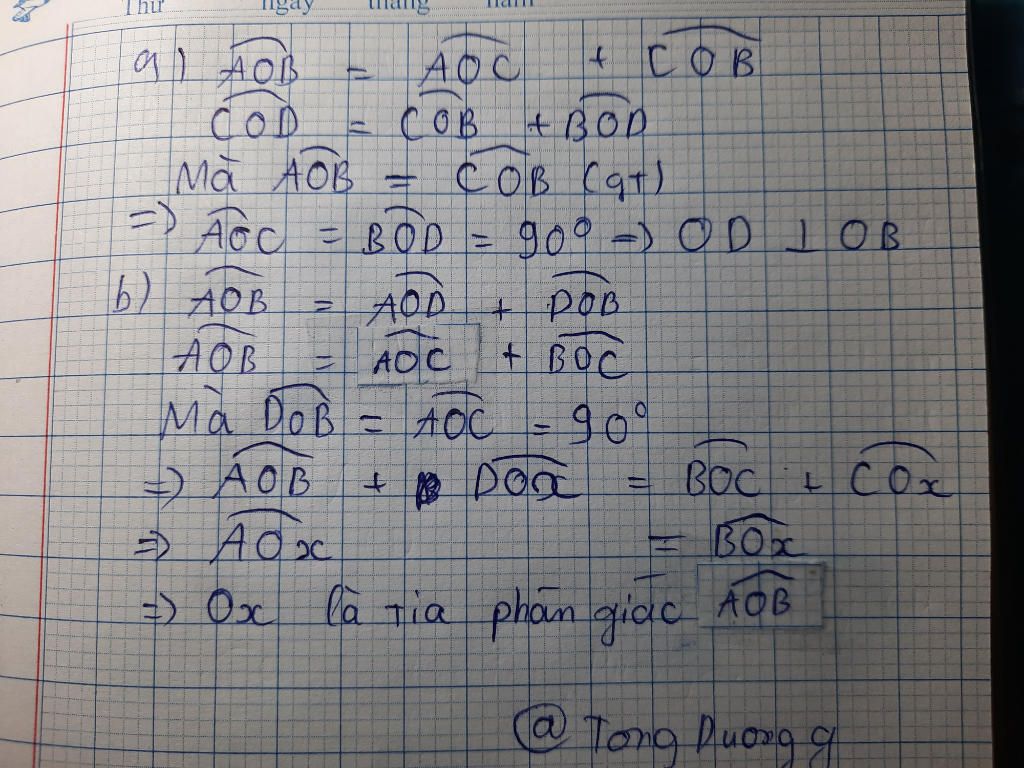 Thứ ngày tháng năm
a) AOB = AOC + COB
COD = COB + BOD
Mà AOB = COB (gt)
=> AOC = BOD = 90° => OD ⊥ OB
b) AOB = AOD + DOB
AOB = AOC + BOC
Mà DOB = AOC = 90°
=> AOB + DOx = BOC + COx
=> AOx = BOx
=> Ox là tia phân giác AOB
@ Tong Duong g